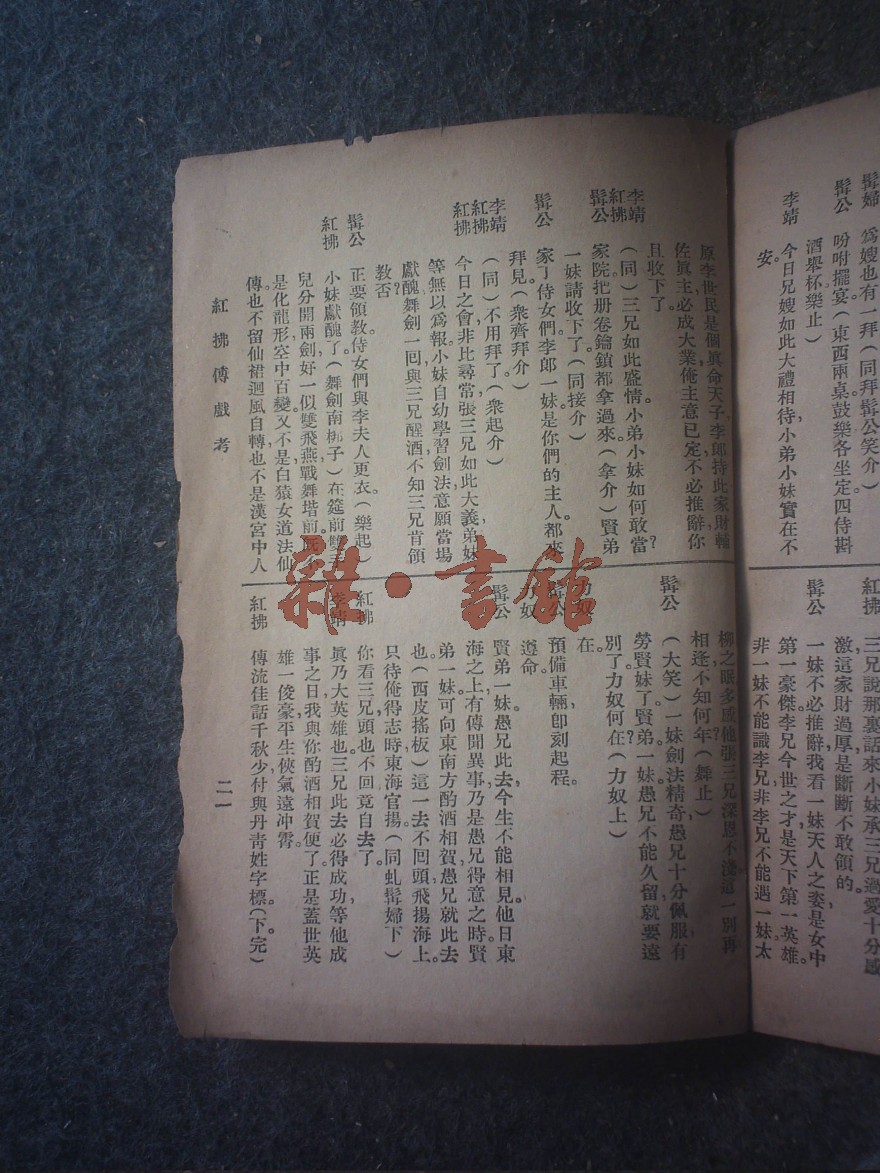 髯婦 爲嫂也有一拜(同拜髯公笑介)
髯公 吩咐擺宴(東西兩桌鼓樂各坐定四侍斟
酒舉杯樂止)
李靖 今日兄嫂如此大禮相待小弟小妹實在不
安。
紅拂 三兄說那裏話來小妹承三兄過愛十分感
激這家財過厚是斷斷不敢領的。
髯公 一妹不必推辭我看一妹天人之姿是女中
第一豪傑李兄今世之才是天下第一英雄。
非一妹不能識李兄非李兄不能遇一妹。太
原李世民是個眞命天子李郎持此家財輔
佐眞主必成大業俺主意已定不必推辭你
且收下了。
李靖
紅拂 (同)三兄如此盛情小弟小妹如何敢當?
髯公 家院把册卷鑰鎖都拿過來(拿介)賢弟
一妹請收下了。(同接介)
髯公 家了侍女們李郎一妹是你們的主人都來
拜見(衆齊拜介)
李靖
紅拂 (同)不用拜了。(衆起介)
紅拂 今日之會非比尋常張三兄如此大義弟妹
等無以爲報。小妹自幼學習劍法意願當場
獻醜舞劍一回與三兄醒酒不知三兄肯領
敎否?
髯公 正要領敎侍女們與李夫人更衣。(樂起)
紅拂 小妹獻醜了(舞劍南梆子)在筵前雙手
兒分開兩劍好一似雙飛燕戰舞堦前。旣不
是化龍形空中百變又不是白猿女道法仙
傳也不留仙裙迴風自轉也不是漢宮中人
柳之眠多感他張三兄深恩不淺這一別再
相逢不知何年(舞止)
髯公 (大笑)一妹劍法精奇愚兄十分佩服有
勞賢妹了。賢弟一妹愚兄不能久留就要遠
別了。力奴何在?(力奴上)
力奴 在。
髯公 預備車輛卽刻起程。
力奴 遵命。
髯公 賢弟一妹愚兄此去今生不能相見。他日東
海之上有傳聞異事乃是愚兄得意之時。賢
弟一妹可向東南方酌酒相賀愚兄就此去
也。(西皮搖板)這一去不回頭飛揚海上。
只待俺得志時東海官揚。(同虬髯婦下)
紅拂 你看三兄頭也不回竟自去了。
李靖 眞乃大英雄也三兄此去必得成功等他成
事之日我與你酌酒相賀便了。正是蓋世英
雄一俊豪平生俠氣遠冲霄。
紅拂 傳流佳話千秋少付與丹青姓字標。(下。完)
紅拂傳戲考
二一
雜·書館